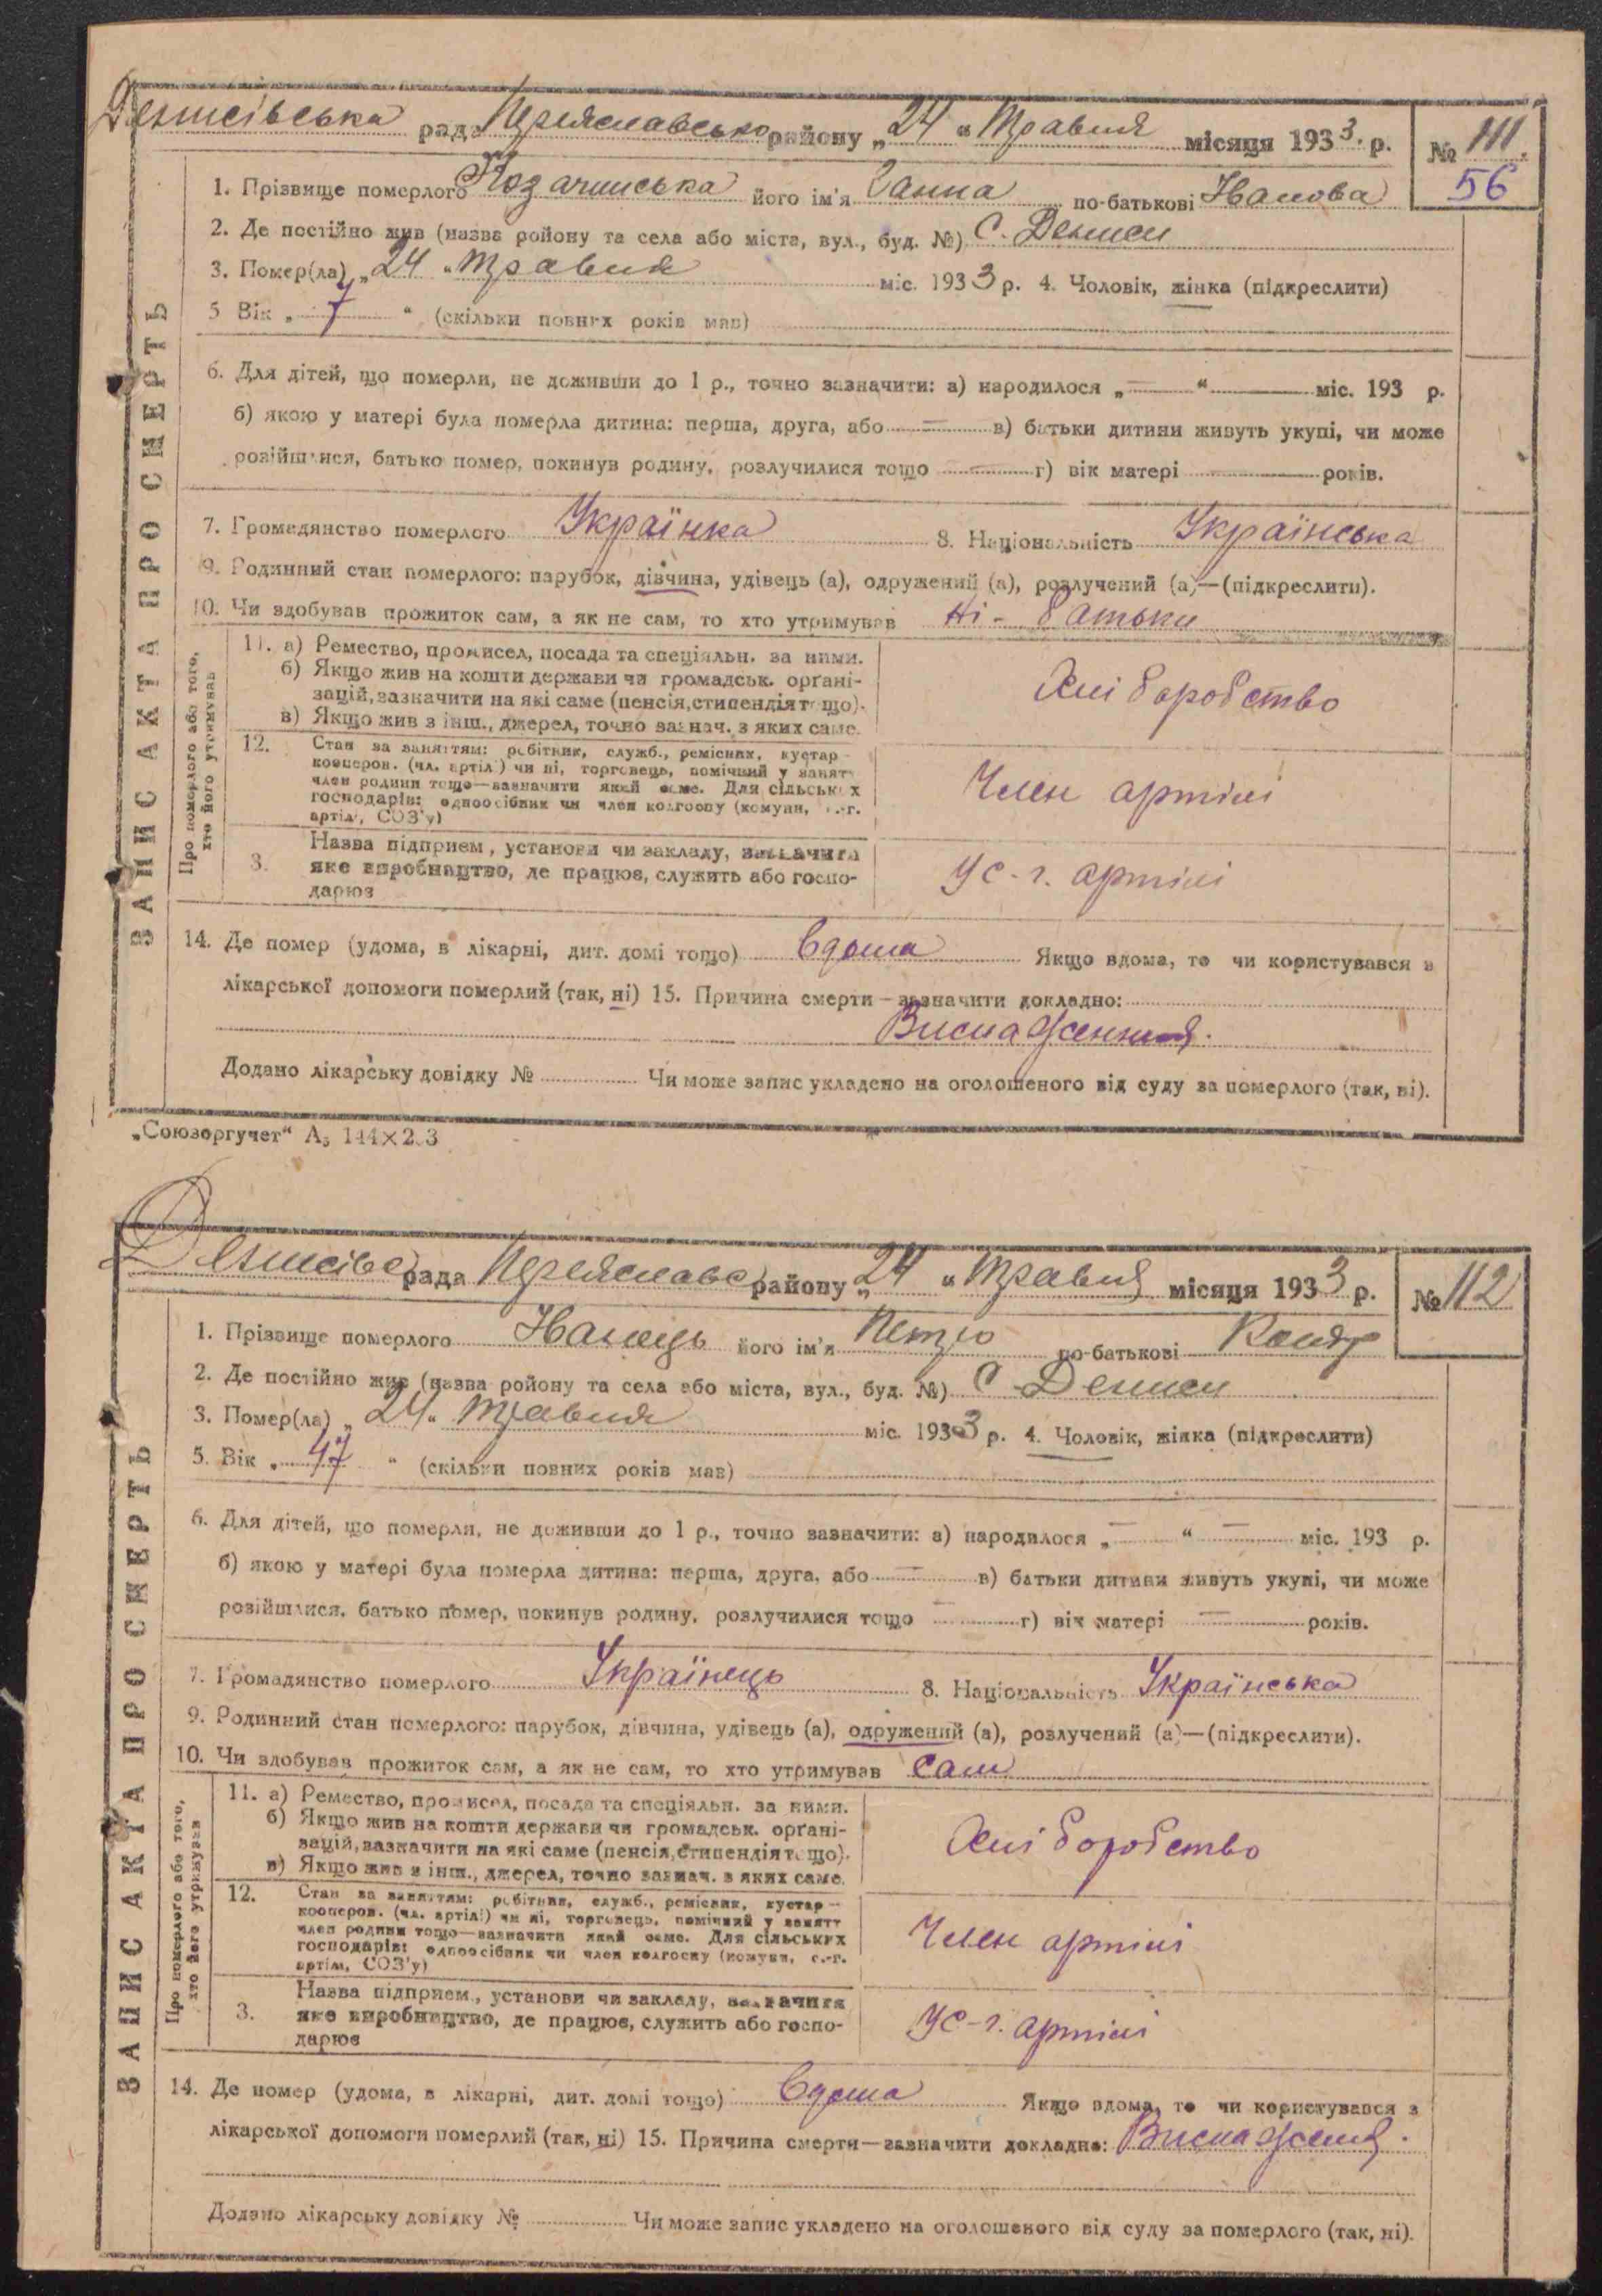 Денисівська рада Переяславсько району „24“ Травня місяця 1933 р. № 111.
56
1. Прізвище померлого Козачинська його ім'я Ганна по-батькові Іванова
2. Де постійно жив (назва ройону та села або міста, вул., буд. №) С. Дениси
3. Помер(ла) „24“ Травня міс. 1933 р. 4. Чоловік, жінка (підкреслити)
5 Вік „7“ (скільки повних років мав)
6. Для дітей, що померли, не доживши до 1 р., точно зазначити: а) народилося „—“ — міс. 193 р.
б) якою у матері була померла дитина: перша, друга, або — в) батьки дитини живуть укупі, чи може
розійшлися, батько помер, покинув родину, розлучилися тощо — г) вік матері — років.
7. Громадянство померлого Українка 8. Національність Українська
9. Родинний стан померлого: парубок, дівчина, удівець (а), одружений (а), розлучений (а)—(підкреслити).
10. Чи здобував прожиток сам, а як не сам, то хто утримував Ні - батьки
Про померлого або того, хто його утримував
11. а) Ремество, промисел, посада та спеціяльн. за ними.
б) Якщо жив на кошти держави чи громадськ. орґані-
зацій, зазначити на які саме (пенсія, стипендія тощо).
в) Якщо жив з інш., джерел, точно зазнач. з яких саме.
Хліборобство
12. Стан за заняттям: робітник, служб., ремісник, кустар—
кооперов. (чл. артілі) чи ні, торговець, помічний у занятт
член родини тощо—зазначити який саме. Для сільських
господарів: одноосібник чи член колгоспу (комуни, с.-г.
артілі, СОЗ'у)
Член артілі
3. Назва підприєм., установи чи закладу, зазначити
яке виробництво, де працює, служить або госпо-
дарює
У с-г. артілі
14. Де помер (удома, в лікарні, дит. домі тощо) вдома Якщо вдома, то чи користувався з
лікарської допомоги померлий (так, ні) 15. Причина смерти—зазначити докладно:
Виснаження.
Додано лікарську довідку № Чи може запис укладено на оголошеного від суду за померлого (так, ні).
ЗАПИС АКТА ПРО СМЕРТЬ
„Союзоргучет“ А₅ 144×203
Денисівс рада Переяславс району „24“ Травня місяця 1933 р. № 112
1. Прізвище померлого його ім'я Петро по-батькові Кондр
2. Де постійно жив (назва ройону та села або міста, вул., буд. №) С Дениси
3. Помер(ла) „24“ Травня міс. 1933 р. 4. Чоловік, жінка (підкреслити)
5. Вік „47“ (скільки повних років мав)
6. Для дітей, що померли, не доживши до 1 р., точно зазначити: а) народилося „—“ — міс. 193 р.
б) якою у матері була померла дитина: перша, друга, або — в) батьки дитини живуть укупі, чи може
розійшлися, батько помер, покинув родину, розлучилися тощо — г) вік матері — років.
7. Громадянство померлого Українець 8. Національність Українська
9. Родинний стан померлого: парубок, дівчина, удівець (а), одружений (а), розлучений (а)—(підкреслити).
10. Чи здобував прожиток сам, а як не сам, то хто утримував Сам
Про померлого або того, хто його утримував
11. а) Ремество, промисел, посада та спеціяльн. за ними.
б) Якщо жив на кошти держави чи громадськ. орґані-
зацій, зазначити на які саме (пенсія, стипендія тощо).
в) Якщо жив з інш., джерел, точно зазнач. з яких саме.
Хліборобство
12. Стан за заняттям: робітник, служб., ремісник, кустар—
кооперов. (чл. артілі) чи ні, торговець, помічний у занятт
член родини тощо—зазначити який саме. Для сільських
господарів: одноосібник чи член колгоспу (комуни, с.-г.
артілі, СОЗ'у)
Член артілі
3. Назва підприєм., установи чи закладу, зазначити
яке виробництво, де працює, служить або госпо-
дарює
У с-г. артілі
14. Де помер (удома, в лікарні, дит. домі тощо) вдома Якщо вдома, то чи користувався з
лікарської допомоги померлий (так, ні) 15. Причина смерти—зазначити докладно: Виснаження.
Додано лікарську довідку № Чи може запис укладено на оголошеного від суду за померлого (так, ні).
ЗАПИС АКТА ПРО СМЕРТЬ